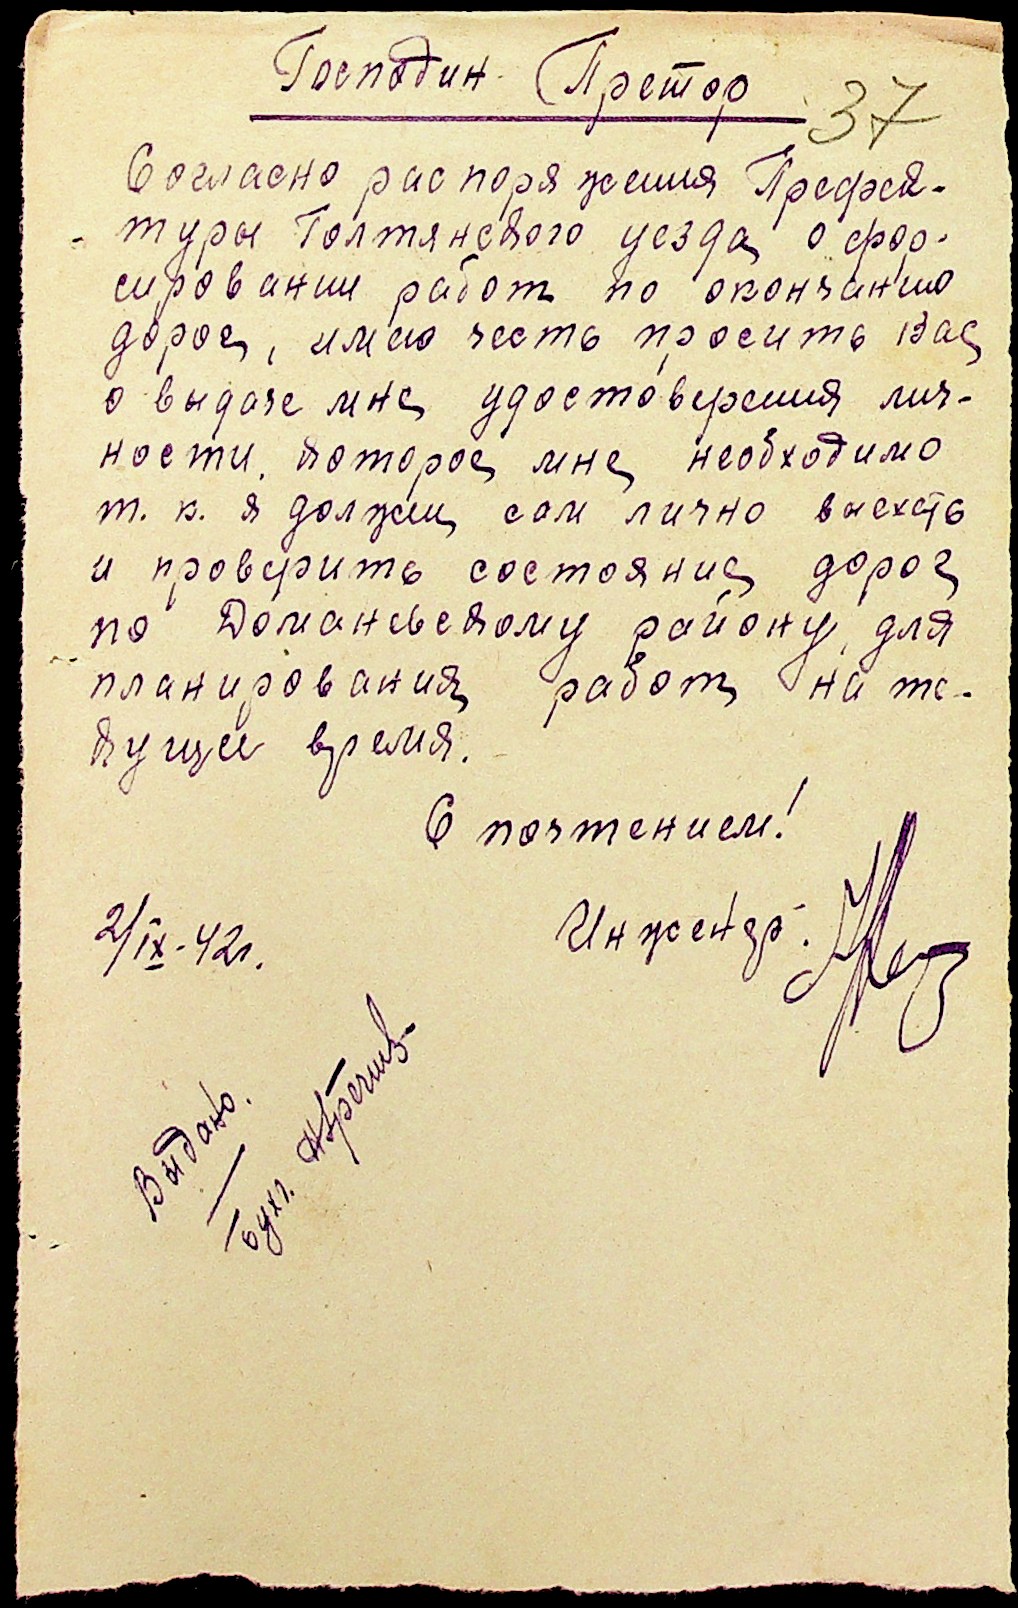 Господин Претор
37
Согласно распоряжения Префек-
туры Голтянского уезда, о фор-
сировании работ по окончанию
дорог, имею честь просить Вас
о выдаче мне удостоверения лич-
ности, которое мне необходимо
т. к. я должен сам лично выехать
и проверить состояние дорог
по Доманевскому району, для
планирования работ на те-
кущее время.
С почтением!
2/IX-42г.
Инженер:
Выдано.
Бухг.